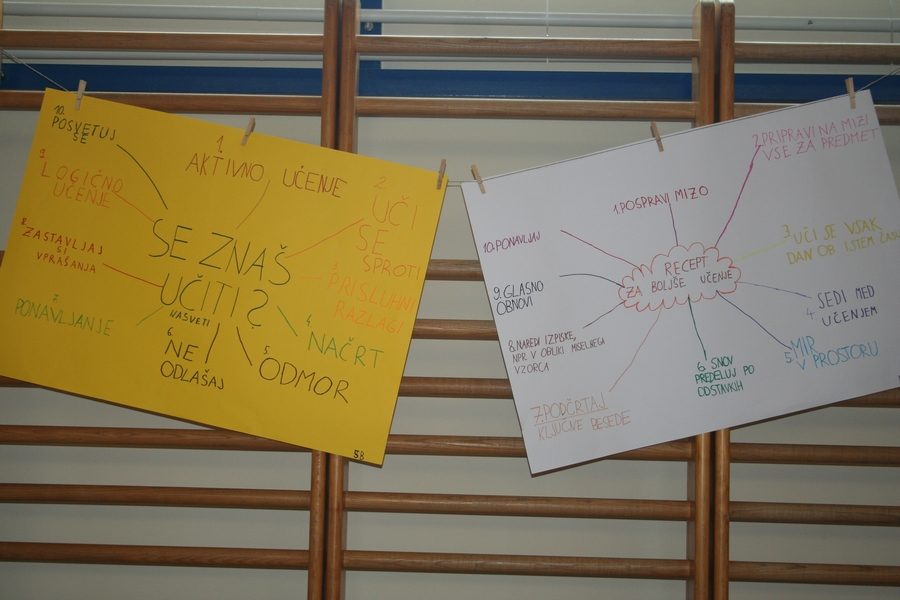 SE ZNAŠ
UČITI?
NASVETI
1.
AKTIVNO UČENJE
2
UČI
SE
SPROTI
3
PRISLUHNI
RAZLAGI
4.
NAČRT
5.
ODMOR
6.
NE
ODLAŠAJ
PONAVLJANJE
8.
ZASTAVLJAJ
SI
VPRAŠANJA
9.
LOGIČNO
UČENJE
10.
POSVETUJ
SE
5B
RECEPT
ZA BOLJŠE UČENJE
1.POSPRAVI MIZO
2.PRIPRAVI NA MIZI
VSE ZA PREDMET
3.
UČI SE VSAK
DAN OB ISTEM ČASU
SEDI MED
4. UČENJEM
5. MIR
V PROSTORU
6 SNOV
PREDELUJ PO
ODSTAVKIH
7.PODČRTAJ
KLJUČNE BESEDE
8.NAREDI IZPISKE,
NPR. V OBLIKI MISELNEGA
VZORCA
9.GLASNO
OBNOVI
10.PONAVLJAJ